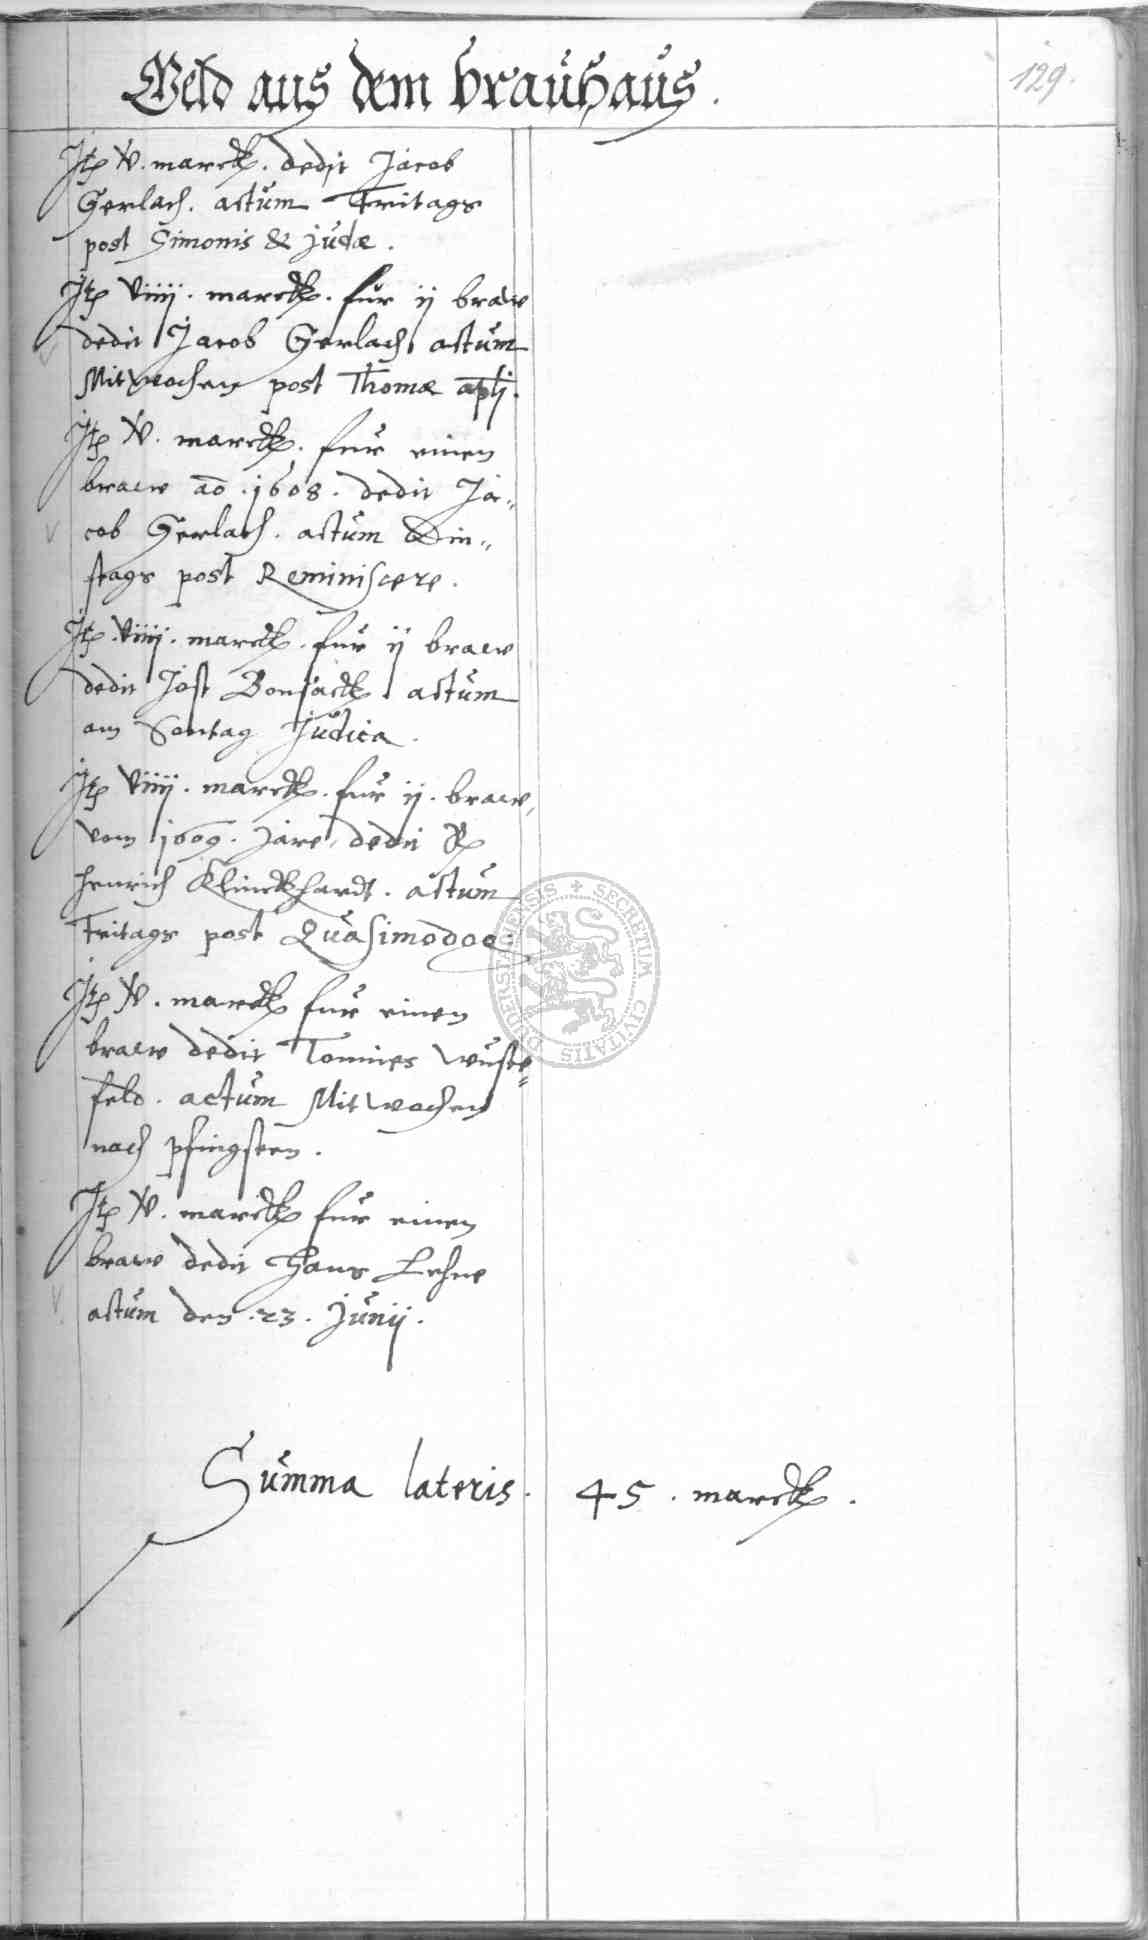 Geld aus dem brauhaus.
129.
Itp V. marck. dedit Jacob
Gerlach. actum Fritags
post Simonis & judæ.
Itp viiij. marck. für ij braw
dedit Jacob Gerlach actum
Mitwochen post Thomæ apli.
Itp V. marck. für einen
braw ao. 1608. dedit Ja„
cob Gerlach. actum Din„
stags post Reminiscere.
Itp. viiij. marck. für ij braw
dedit Jost Bonsack actum
am Sontag Judica.
Itp viiij. marck. für ij. braw,
vom 1609. jare, dedit
Henrich Klinckhardt. actum
Fritags post Quasimodog:
Itp V. marck für einen
braw dedit Tonnies Wuste„
feld. actum Mitwochen
nach pfingsten.
Itp V. marck für einen
braw dedit Hans Lehne
actum den .23. Junij.
Summa lateris. 45. marck.
SECRETUM CIVITATIS DUDERSTADIENSIS